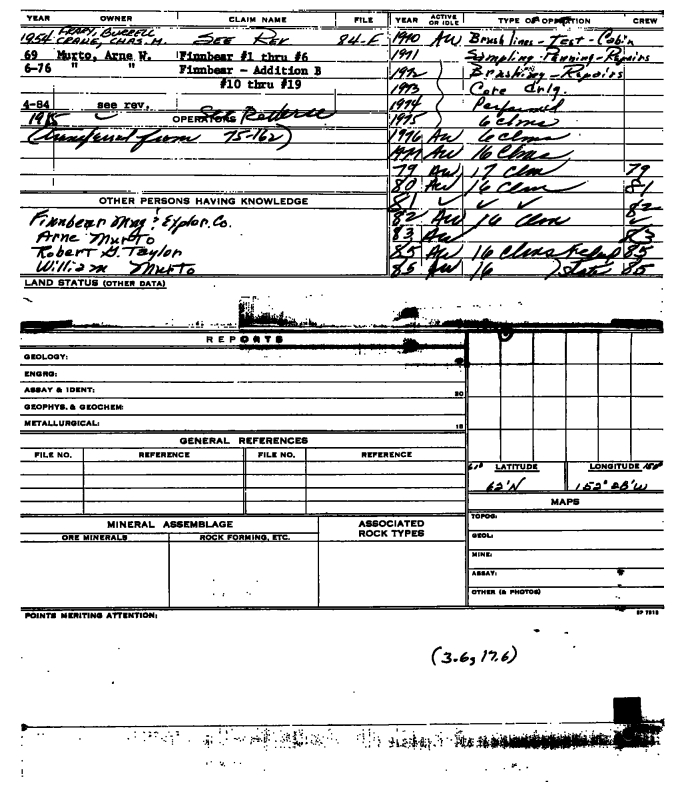 YEAR OWNER CLAIM NAME FILE YEAR ACTIVE OR IDLE TYPE OF OPERATION CREW
1954 CRANE, CHAS. M. SEE REV 84-F 1970 AW Brush lines - Test - Cabin
69 Murto, Arne W. Finnbear #1 thru #6 1971 Sampling Panning - Repairs
6-76 " " Finnbear - Addition B 1972 Brushing - Repairs
#10 thru #19 1973 Core drlg.
4-84 see rev. 1974 Performed
OPERATORS 1975 6 clms
(Transferred from 75-162) 1976 AW 6 Clms
AW 16 Clms
79 AW 17 Clm 79
80 AW 16 Clm 81
OTHER PERSONS HAVING KNOWLEDGE 81 ✓ ✓ ✓ 82
Finnbear Mng & Explor. Co. 82 AW 16 Clm ✓
Arne Murto 83 AW 83
Robert G. Taylor 85 AW 16 Clms 85
William Murto 85 AW 16 State 85
LAND STATUS (OTHER DATA)
REPORTS
GEOLOGY:
ENGRG:
ASSAY & IDENT: 20
GEOPHYS. & GEOCHEM:
METALLURGICAL: 15
GENERAL REFERENCES
FILE NO. REFERENCE FILE NO. REFERENCE
61° LATITUDE LONGITUDE 150°
62'N 152° 28'W
MAPS
MINERAL ASSEMBLAGE ASSOCIATED ROCK TYPES TOPOG:
ORE MINERALS ROCK FORMING, ETC. GEOL:
MINE:
ASSAY:
OTHER (& PHOTOS)
POINTS MERITING ATTENTION:
(3.6, 17.6)